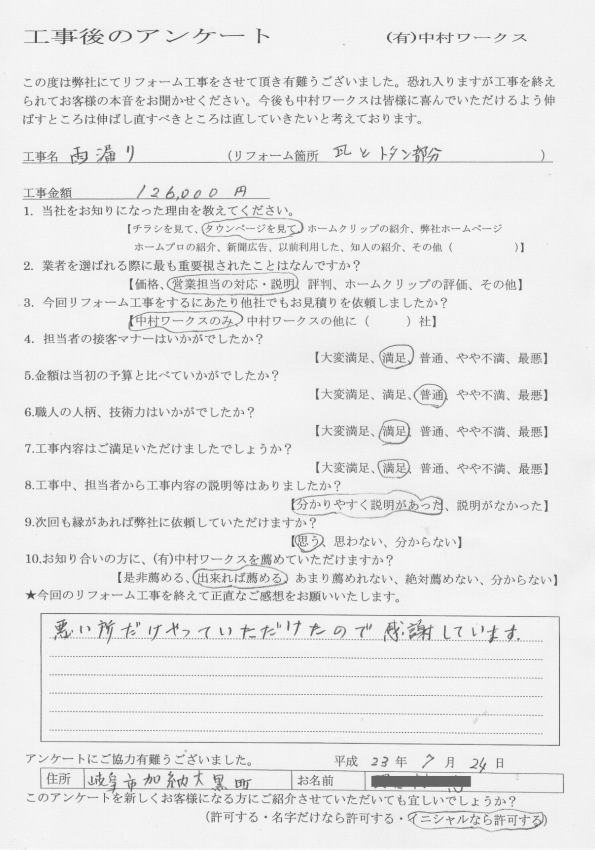 工事後のアンケート　(有)中村ワークス
この度は弊社にてリフォーム工事をさせて頂き有難うございました。恐れ入りますが工事を終え
られてお客様の本音をお聞かせください。今後も中村ワークスは皆様に喜んでいただけるよう伸
ばすところは伸ばし直すべきところは直していきたいと考えております。
工事名　雨漏り　（リフォーム箇所　瓦とトタン部分　）
工事金額　126,000円
1．当社をお知りになった理由を教えてください。
【チラシを見て、タウンページを見て、ホームクリップの紹介、弊社ホームページ
ホームプロの紹介、新聞広告、以前利用した、知人の紹介、その他（　）】
2．業者を選ばれる際に最も重要視されたことはなんですか？
【価格、営業担当の対応・説明、評判、ホームクリップの評価、その他】
3．今回リフォーム工事をするにあたり他社でもお見積りを依頼しましたか？
【中村ワークスのみ、中村ワークスの他に（　）社】
4．担当者の接客マナーはいかがでしたか？
【大変満足、満足、普通、やや不満、最悪】
5.金額は当初の予算と比べていかがでしたか？
【大変満足、満足、普通、やや不満、最悪】
6.職人の人柄、技術力はいかがでしたか？
【大変満足、満足、普通、やや不満、最悪】
7.工事内容はご満足いただけましたでしょうか？
【大変満足、満足、普通、やや不満、最悪】
8.工事中、担当者から工事内容の説明等はありましたか？
【分かりやすく説明があった、説明がなかった】
9.次回も縁があれば弊社に依頼していただけますか？
【思う、思わない、分からない】
10.お知り合いの方に、(有)中村ワークスを薦めていただけますか？
【是非薦める、出来れば薦める、あまり薦めれない、絶対薦めない、分からない】
★今回のリフォーム工事を終えて正直なご感想をお願いいたします。
悪い所だけやっていただけたので感謝しています。
アンケートにご協力有難うございました。　平成 23 年 7 月 24 日
住所　岐阜市加納大黒町　お名前
このアンケートを新しくお客様になる方にご紹介させていただいても宜しいでしょうか？
（許可する・名字だけなら許可する・イニシャルなら許可する）